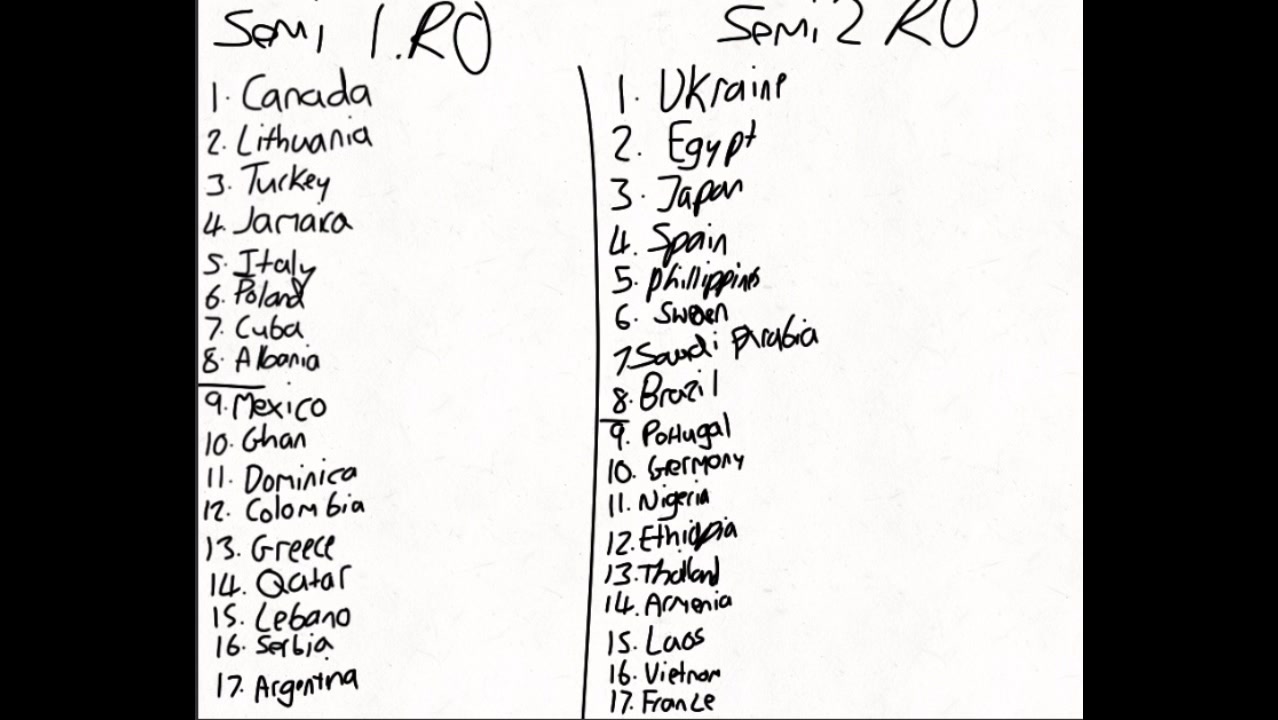 Semi 1.RO
1. Canada
2. Lithuania
3. Turkey
4. Jamaica
5. Italy
6. Poland
7. Cuba
8. Albania
9. Mexico
10. Ghan
11. Dominica
12. Colombia
13. Greece
14. Qatar
15. Lebano
16. Serbia
17. Argentina
Semi 2 RO
1. Ukraine
2. Egypt
3. Japan
4. Spain
5. Phillippines
6. Sweden
7. Saudi Arabia
8. Brazil
9. Portugal
10. Germany
11. Nigeria
12. Ethiopia
13. Thailand
14. Armenia
15. Laos
16. Vietnam
17. France